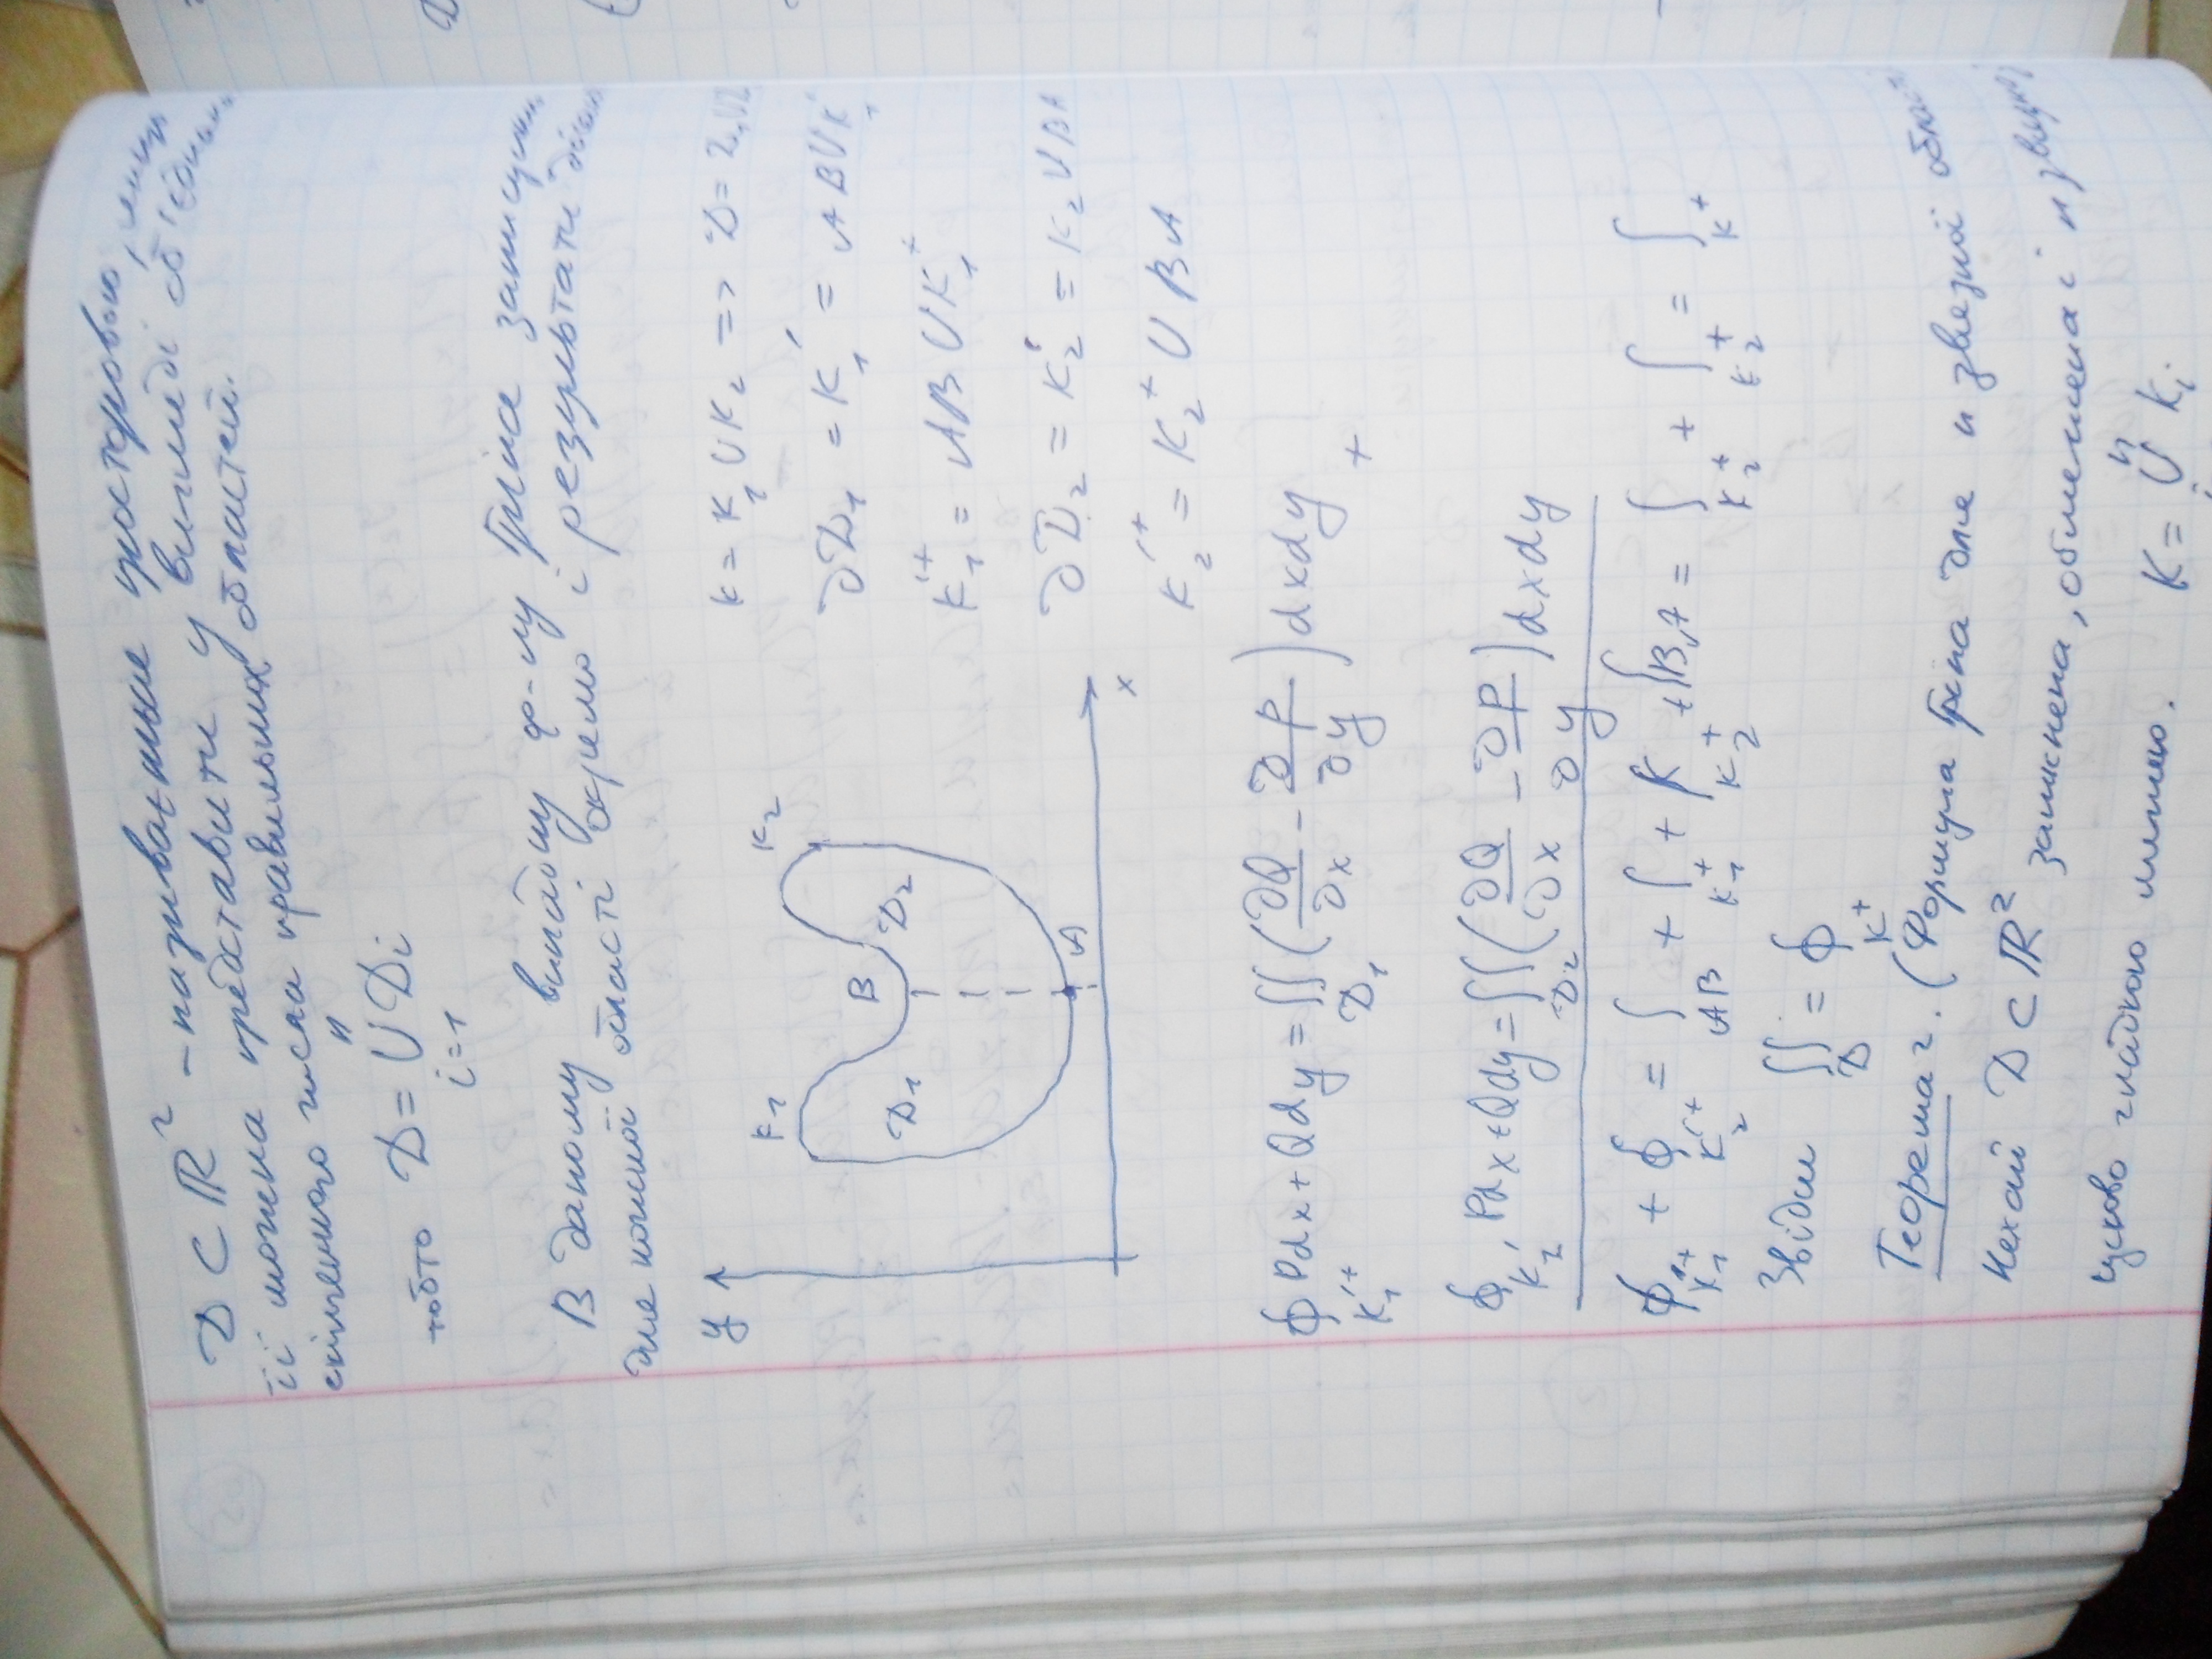 D ⊂ ℝ² - називається простровою, якщо
її можна представити у вигляді об'єднання
скінченного числа правильних областей.
тобто D = ⋃ⁿᵢ₌₁ Dᵢ
В даному випадку ф-лу Гріна запишемо
для кожної області окремо і результати
y
K₁
K₂
B
D₁
D₂
A
x
K = K₁ ∪ K₂ => D =
∂D₁ = K₁' = AB ∪ K₁
K₁'⁺ = AB ∪ K₁⁺
∂D₂ = K₂' = K₂ ∪ BA
K₂'⁺ = K₂⁺ ∪ BA
∮_{K₁'⁺} Pdx + Qdy = ∬_{D₁} (∂Q/∂x - ∂P/∂y) dxdy +
∮_{K₂'} Pdx + Qdy = ∬_{D₂} (∂Q/∂x - ∂P/∂y) dxdy
∮_{K₁'⁺} + ∮_{K₂'⁺} = ∫_{AB} + ∫_{K₁⁺} + ∫_{K₂⁺} + ∫_{BA} = ∫_{K₂⁺} + ∫_{K₂⁺} = ∫_{K⁺}
Звідси ∬_D = ∮_{K⁺}
Теорема 2. (Формула Гріна для n звязної області
Нехай D ⊂ ℝ² замкнена, обмежена і n звязна
кусково гладкою лінією. K = ⋃ⁿᵢ Kᵢ